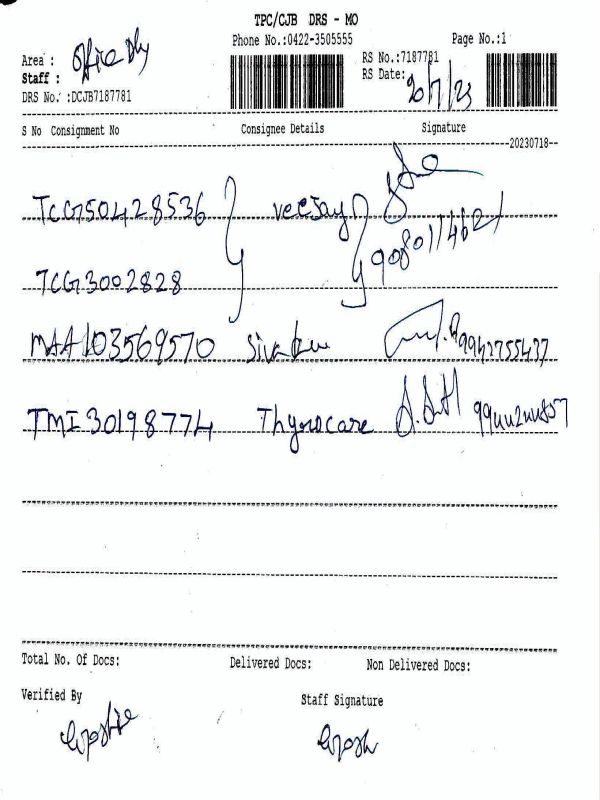 TPC/CJB DRS - MO
Phone No.:0422-3505555
Page No.:1
Area : Office Dly
Staff :
DRS No. :DCJB7187781
RS No.:7187781
RS Date: 20/7/23
S No Consignment No Consignee Details Signature
--20230718--
TCG50428536 veejay
9080114621
TCG3002828
MAA103569570 9942755437
TMI30198774 Thyrocare
Total No. Of Docs: Delivered Docs: Non Delivered Docs:
Verified By Staff Signature